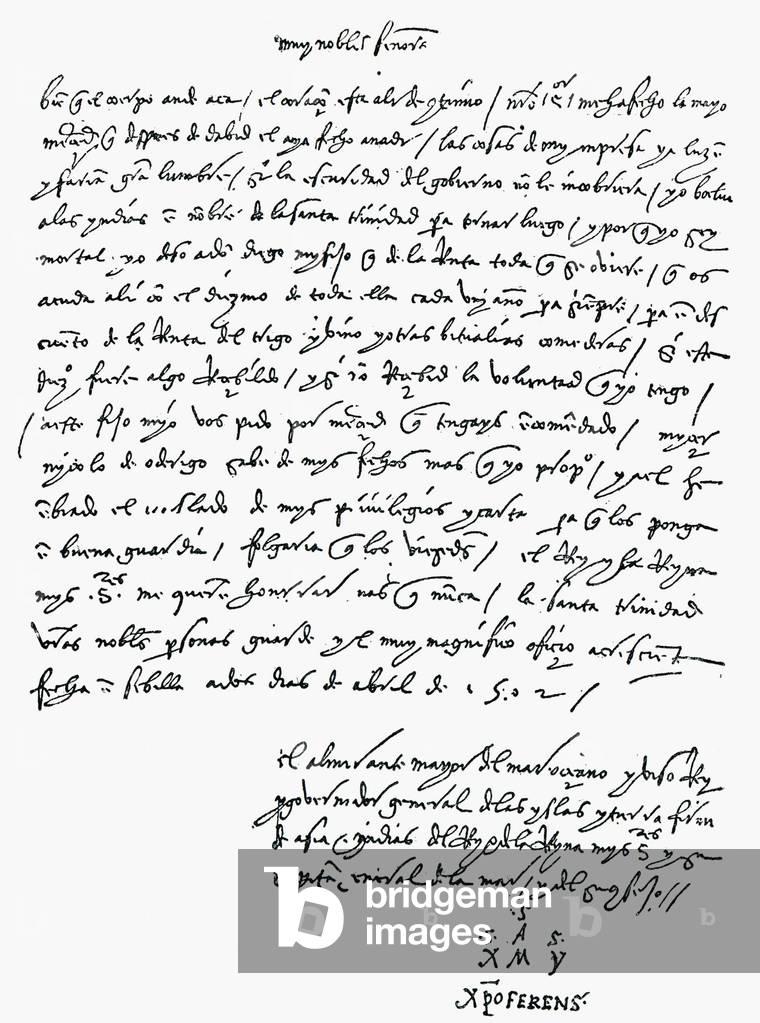 muy nobles señores
bie q el coerpo ande aca / el coraço esta ali de cotinuo / nro .S.or me ha fecho la mayor
merçed q despues de dabid el aya fecho a nadi / las cosas de my impresa ya luze
y faria gra lumbre / si la escuridad del gobierno no le incobriera / yo boelbo
a las yndias e nobre de la santa trinidad pa tornar luego / y por q yo soy
mortal yo dexo a do diego my fijo q de la renta toda q se obiere / q os
acuda ali co el diezmo de toda ella cada un año pa siempre / pa e des
cueto de la renta del trigo y bino y otras bitualias comederas / si este
diezo fuere algo recebildo / y si no recebid la voluntad q yo tengo /
/ a este fijo myo vos pido por merced q tengays ecomedado / myçer
nycolo de oderigo sabe de mys fechos mas q yo propo / y a el he
ebiado el treslado de mys privilegios y carta pa q los ponga
e buena guardia / folgaria q los viesedes / el Rey y la Reyna
mys .S.res me quiere honrrar mas q nuca / la santa trinidad
vras nobles psonas guarde y el muy magnifico oficio acresciente
fecha e sebilla a dos dias de abril de 1502 /
el almirante mayor del mar oceano y viso Rey
y gobernador general de las yslas y tierra firme
de asia e yndias del Rey e de la Reyna mys S.res y su
capita general de la mar y del su consejo //
.S.
.S. A .S.
X M Y
Xpo FERENS.
bridgeman
images